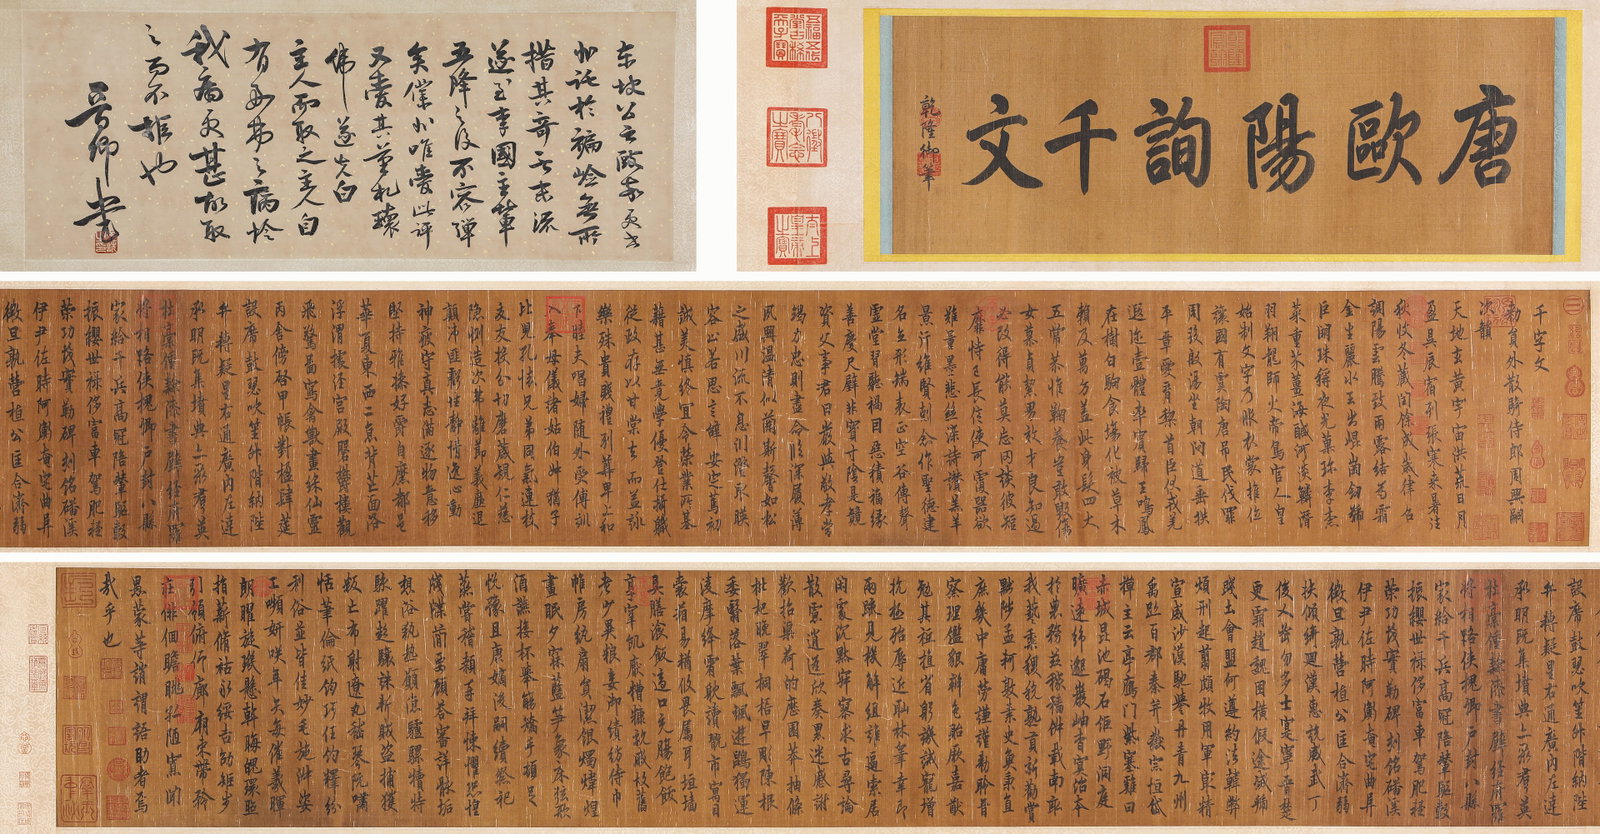 唐歐陽詢千文
乾隆御筆
五福五代堂古稀天子寶
八徵耄念之寶
太上皇帝之寶
措其奇
遂至李國主輩
五降之後不容彈
矣僕唯愛此評
又愛其筆札瓌
偉遂以白
主人而取之主人自
我病更甚故取
之而不拒也
晉卿書
千字文
勑員外散騎侍郎周興嗣
次韻
天地玄黃宇宙洪荒日月
盈昃辰宿列張寒來暑往
秋收冬藏閏餘成歲律呂
調陽雲騰致雨露結為霜
金生麗水玉出崐崗劒號
巨闕珠稱夜光菓珍李柰
菜重芥薑海鹹河淡鱗潛
羽翔龍師火帝鳥官人皇
始制文字乃服衣裳推位
讓國有虞陶唐弔民伐罪
周發殷湯坐朝問道垂拱
平章愛育黎首臣伏戎羌
遐迩壹體率賓歸王鳴鳳
在樹白駒食場化被草木
賴及萬方蓋此身髮四大
五常恭惟鞠養豈敢毀傷
女慕貞絜男效才良知過
必改得能莫忘罔談彼短
靡恃己長信使可覆器欲
難量墨悲絲染詩讚羔羊
景行維賢剋念作聖德建
名立形端表正空谷傳聲
虛堂習聽禍因惡積福緣
善慶尺璧非寶寸陰是競
資父事君曰嚴與敬孝當
竭力忠則盡命臨深履薄
夙興溫凊似蘭斯馨如松
之盛川流不息淵澄取暎
容止若思言辭安定篤初
誠美慎終宜令榮業所基
藉甚無竟學優登仕攝職
從政存以甘棠去而益詠
樂殊貴賤禮別尊卑上和
下睦夫唱婦隨外受傅訓
入奉母儀諸姑伯叔猶子
比兒孔懷兄弟同氣連枝
交友投分切磨箴規仁慈
隱惻造次弗離節義廉退
顛沛匪虧性靜情逸心動
神疲守真志滿逐物意移
堅持雅操好爵自縻都邑
華夏東西二京背芒面洛
浮渭據涇宮殿盤鬱樓觀
飛驚圖寫禽獸畫綵仙靈
丙舍傍啓甲帳對楹肆筵
設席鼓瑟吹笙升階納陛
弁轉疑星右通廣內左達
承明既集墳典亦聚群英
杜藁鍾隸漆書壁經府羅
將相路俠槐卿戶封八縣
家給千兵高冠陪輦驅轂
振纓世祿侈富車駕肥輕
策功茂實勒碑刻銘磻溪
伊尹佐時阿衡奄宅曲阜
微旦孰營桓公匡合濟弱
設席鼓瑟吹笙升階納陛
弁轉疑星右通廣內左達
承明既集墳典亦聚群英
杜藁鍾隸漆書壁經府羅
將相路俠槐卿戶封八縣
家給千兵高冠陪輦驅轂
振纓世祿侈富車駕肥輕
策功茂實勒碑刻銘磻溪
伊尹佐時阿衡奄宅曲阜
微旦孰營桓公匡合濟弱
扶傾綺迴漢惠說感武丁
俊乂密勿多士寔寧晉楚
更霸趙魏困橫假途滅虢
踐土會盟何遵約法韓弊
煩刑起翦頗牧用軍最精
宣威沙漠馳譽丹青九州
禹跡百郡秦并嶽宗恒岱
禪主云亭鴈門紫塞雞田
赤城昆池碣石鉅野洞庭
曠遠綿邈巖岫杳冥治本
於農務茲稼穡俶載南畝
我藝黍稷稅熟貢新勸賞
黜陟孟軻敦素史魚秉直
庶幾中庸勞謙謹勑聆音
察理鑑貌辨色貽厥嘉猷
勉其祗植省躬譏誡寵增
抗極殆辱近恥林皋幸即
兩疏見機解組誰逼索居
閑處沉默寂寥求古尋論
散慮逍遙欣奏累遣慼謝
歡招渠荷的歷園莽抽條
枇杷晚翠梧桐早凋陳根
委翳落葉飄颻遊鵾獨運
凌摩絳霄耽讀翫市寓目
囊箱易輶攸畏屬耳垣墻
具膳飡飯適口充腸飽飫
烹宰飢厭糟糠親戚故舊
老少異糧妾御績紡侍巾
帷房紈扇員潔銀燭煒煌
晝眠夕寐藍笋象床弦歌
酒讌接杯舉觴矯手頓足
悅豫且康嫡後嗣續祭祀
蒸嘗稽顙再拜悚懼恐惶
牋牒簡要顧答審詳骸垢
想浴執熱願涼驢騾犢特
駭躍超驤誅斬賊盜捕獲
叛亡布射遼丸嵇琴阮嘯
恬筆倫紙鈞巧任釣釋紛
利俗並皆佳妙毛施淑姿
工嚬妍咲年矢每催羲暉
朗曜琁璣懸斡晦魄環照
指薪脩祜永綏吉劭矩步
引領俯仰廊廟束帶矜
莊徘徊瞻眺孤陋寡聞
愚蒙等誚謂語助者焉
哉乎也